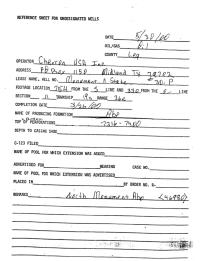 REFERENCE SHEET FOR UNDESIGNATED WELLS
DATE 5/30/00
OIL/GAS Oil
COUNTY Lea
OPERATOR Chevron USA Inc
ADDRESS P.O. Box 1150 Midland Tx 79702
LEASE NAME, WELL NO. Monument A State
FOOTAGE LOCATION FROM THE S LINE AND 330 FROM THE LINE
SECTION TOWNSHIP 19s RANGE 36e
COMPLETION DATE
NAME OF PRODUCING FORMATION Abo
TOP OF PERFORATIONS
DEPTH TO CASING SHOE
C-123 FILED
NAME OF POOL FOR WHICH EXTENSION WAS ASKED
ADVERTISED FOR HEARING CASE NO.
NAME OF POOL FOR WHICH EXTENSION WAS ADVERTISED
PLACED IN BY ORDER NO. R-
REMARKS North Monument Abo